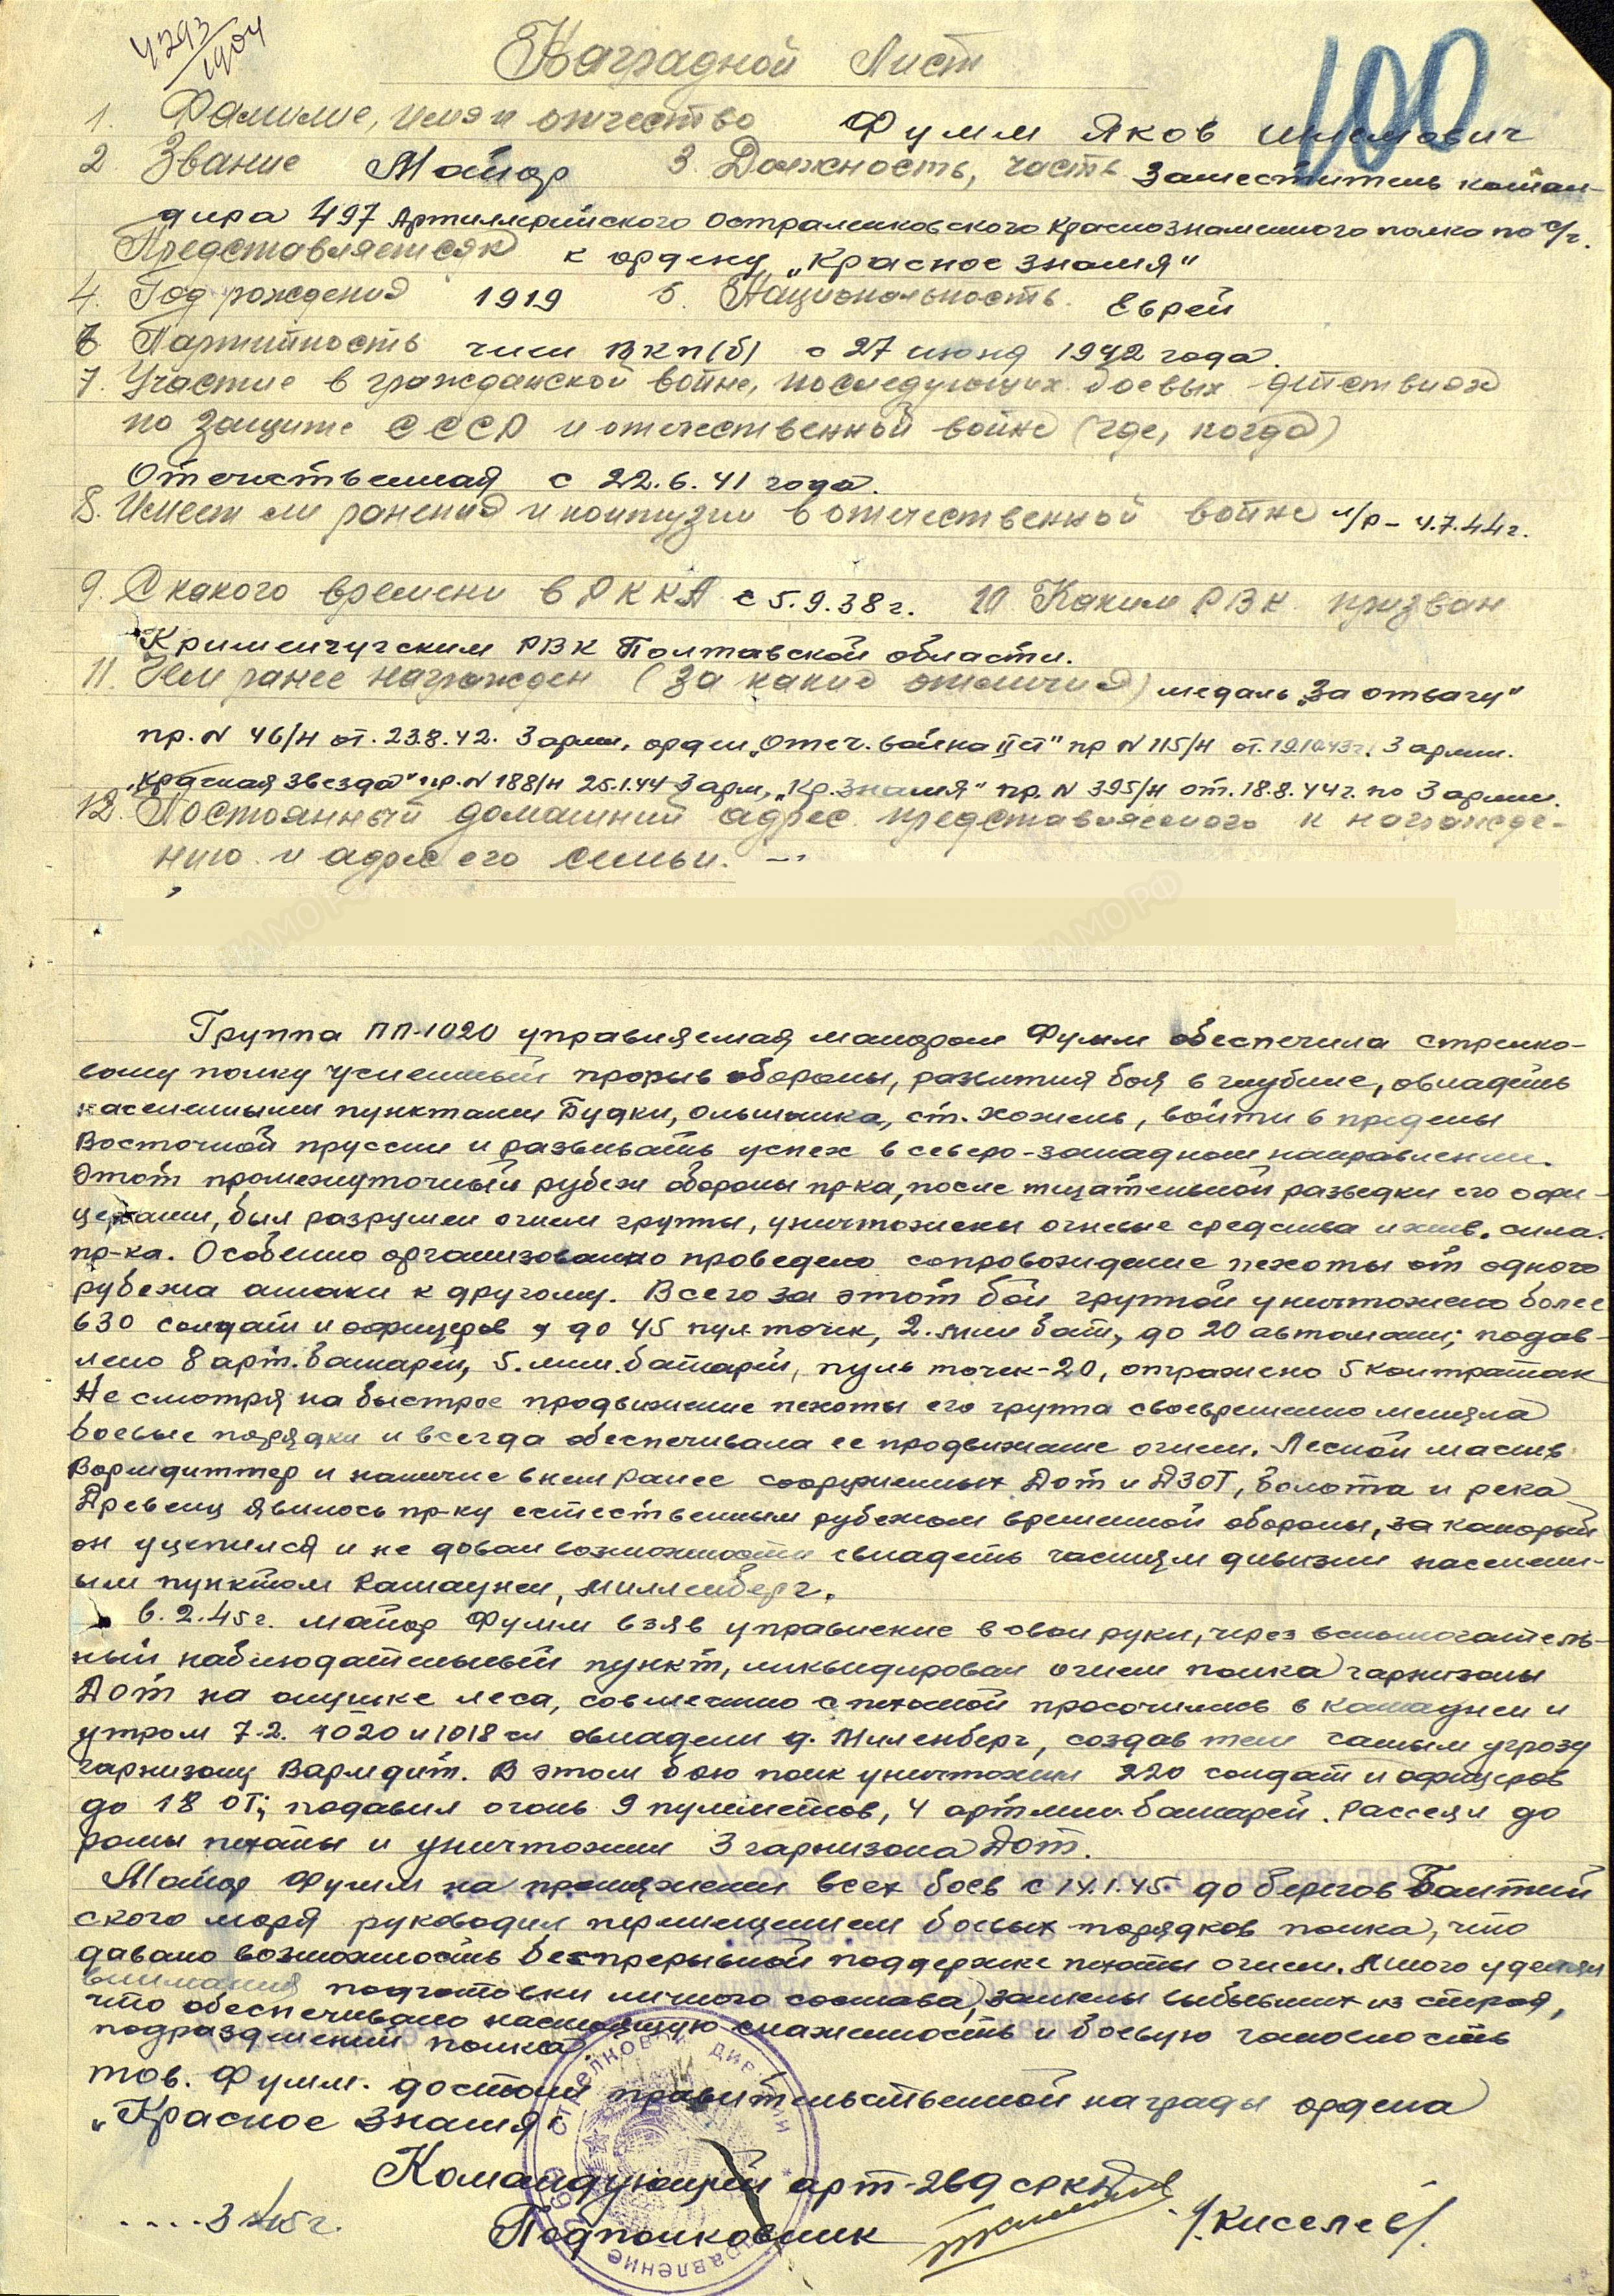 4293/1904
100
Наградной Лист
1. Фамилие, имя и отчество Фумм Яков
2. Звание Майор 3. Должность, часть Заместитель коман-
дира 497 Артиллерийского Остроленковского Краснознаменного полка по с/ч.
Представляется к к ордену „Красное знамя"
4. Год рождения 1919 5. Национальность. Еврей
6 Партийность член ВКП(б) с 27 июня 1942 года.
7. Участие в гражданской войне, последующих боевых действиях
по защите СССР и отечественной войне (где, когда)
Отечественная с 22.6.41 года.
8. Имеет ли ранения и контузии в отечественной войне л/р – 4.7.44г.
9. С какого времени в РККА с 5.9.38г. 10 Каким РВК призван
Кременчугским РВК Полтавской области.
11. Чем ранее награжден (за какие отличия) медаль „За отвагу"
пр. N 46/н от. 23.8.42. 3 арми, орден „Отеч. война II ст" пр N 115/н от. 19.10.43г. 3 армии.
„Красная звезда" пр. N 188/н 25.1.44 3 арм, „Кр. Знамя" пр. N 395/н от. 18.8.44г. по 3 армии.
12. Постоянный домашний адрес представляемого к награжде-
нию и адрес его семьи. –
ЦАМО РФ ЦАМО РФ
Группа ПП-1020 управляемая майором Фумм обеспечила стрелко-
вому полку успешный прорыв обороны, развития боя в глубине, овладеть
населенными пунктами Будки, Ольшанка, ст. Хожель, войти в пределы
Восточной пруссии и развивать успех в северо-западном направлении.
Этот промежуточный рубеж обороны пр-ка, после тщательной разведки его офи-
церами, был разрушен огнем группы, уничтожены огневые средства и жив. сила.
пр-ка. Особенно организованно проведено сопровождение пехоты от одного
рубежа атаки к другому. Всего за этот бой группой уничтожено более
630 солдат и офицеров до 45 пул точек, 2. мин бат, до 20 автомаш; подав-
лено 8 арт. батарей, 5. мин. батарей, пуль точек-20, отражено 5 контратак
Не смотря на быстрое продвижение пехоты его группа своевременно меняла
боевые порядки и всегда обеспечивала ее продвижение огнем. Лесной массив
Вормдиттер и наличие в нем ранее сооруженных Дот и ДЗОТ, болота и река
Древенц явилось пр-ку естественным рубежом временной обороны, за который
он уцепился и не давал возможности овладеть частям дивизии населен-
ым пунктом Милленберг.
6.2.45г. майор Фумм взяв управление в свои руки, через вспомогатель-
ный наблюдательный пункт, ликвидировал огнем полка гарнизоны
Дот на опушке леса, совместно с пехотой просочились в и
утром 7.2. 1020 и 1018 сп овладели д. Миленберг, создав тем самым угрозу
гарнизону Вармдит. В этом бою полк уничтожил 220 солдат и офицеров
до 18 ОТ; подавил огонь 9 пулеметов, 4 арт мин. батарей. Рассеял до
роты пехоты и уничтожил 3 гарнизона Дот.
Майор Фумм на протяжении всех боев с 14.1.45 до берегов Балтий
ского моря руководил перемещением боевых порядков полка, что
давало возможность беспрерывной поддержке пехоты огнем. Много уделял
внимания подготовки личного состава, замены выбывших из строя,
что обеспечивало настоящую слаженность и боевую
подразделений полка.
тов. Фумм. достоин правительственной награды ордена
„Красное знамя"
Командующий арт-269 СРКД
Подполковник /Киселев/.
....3 45г.